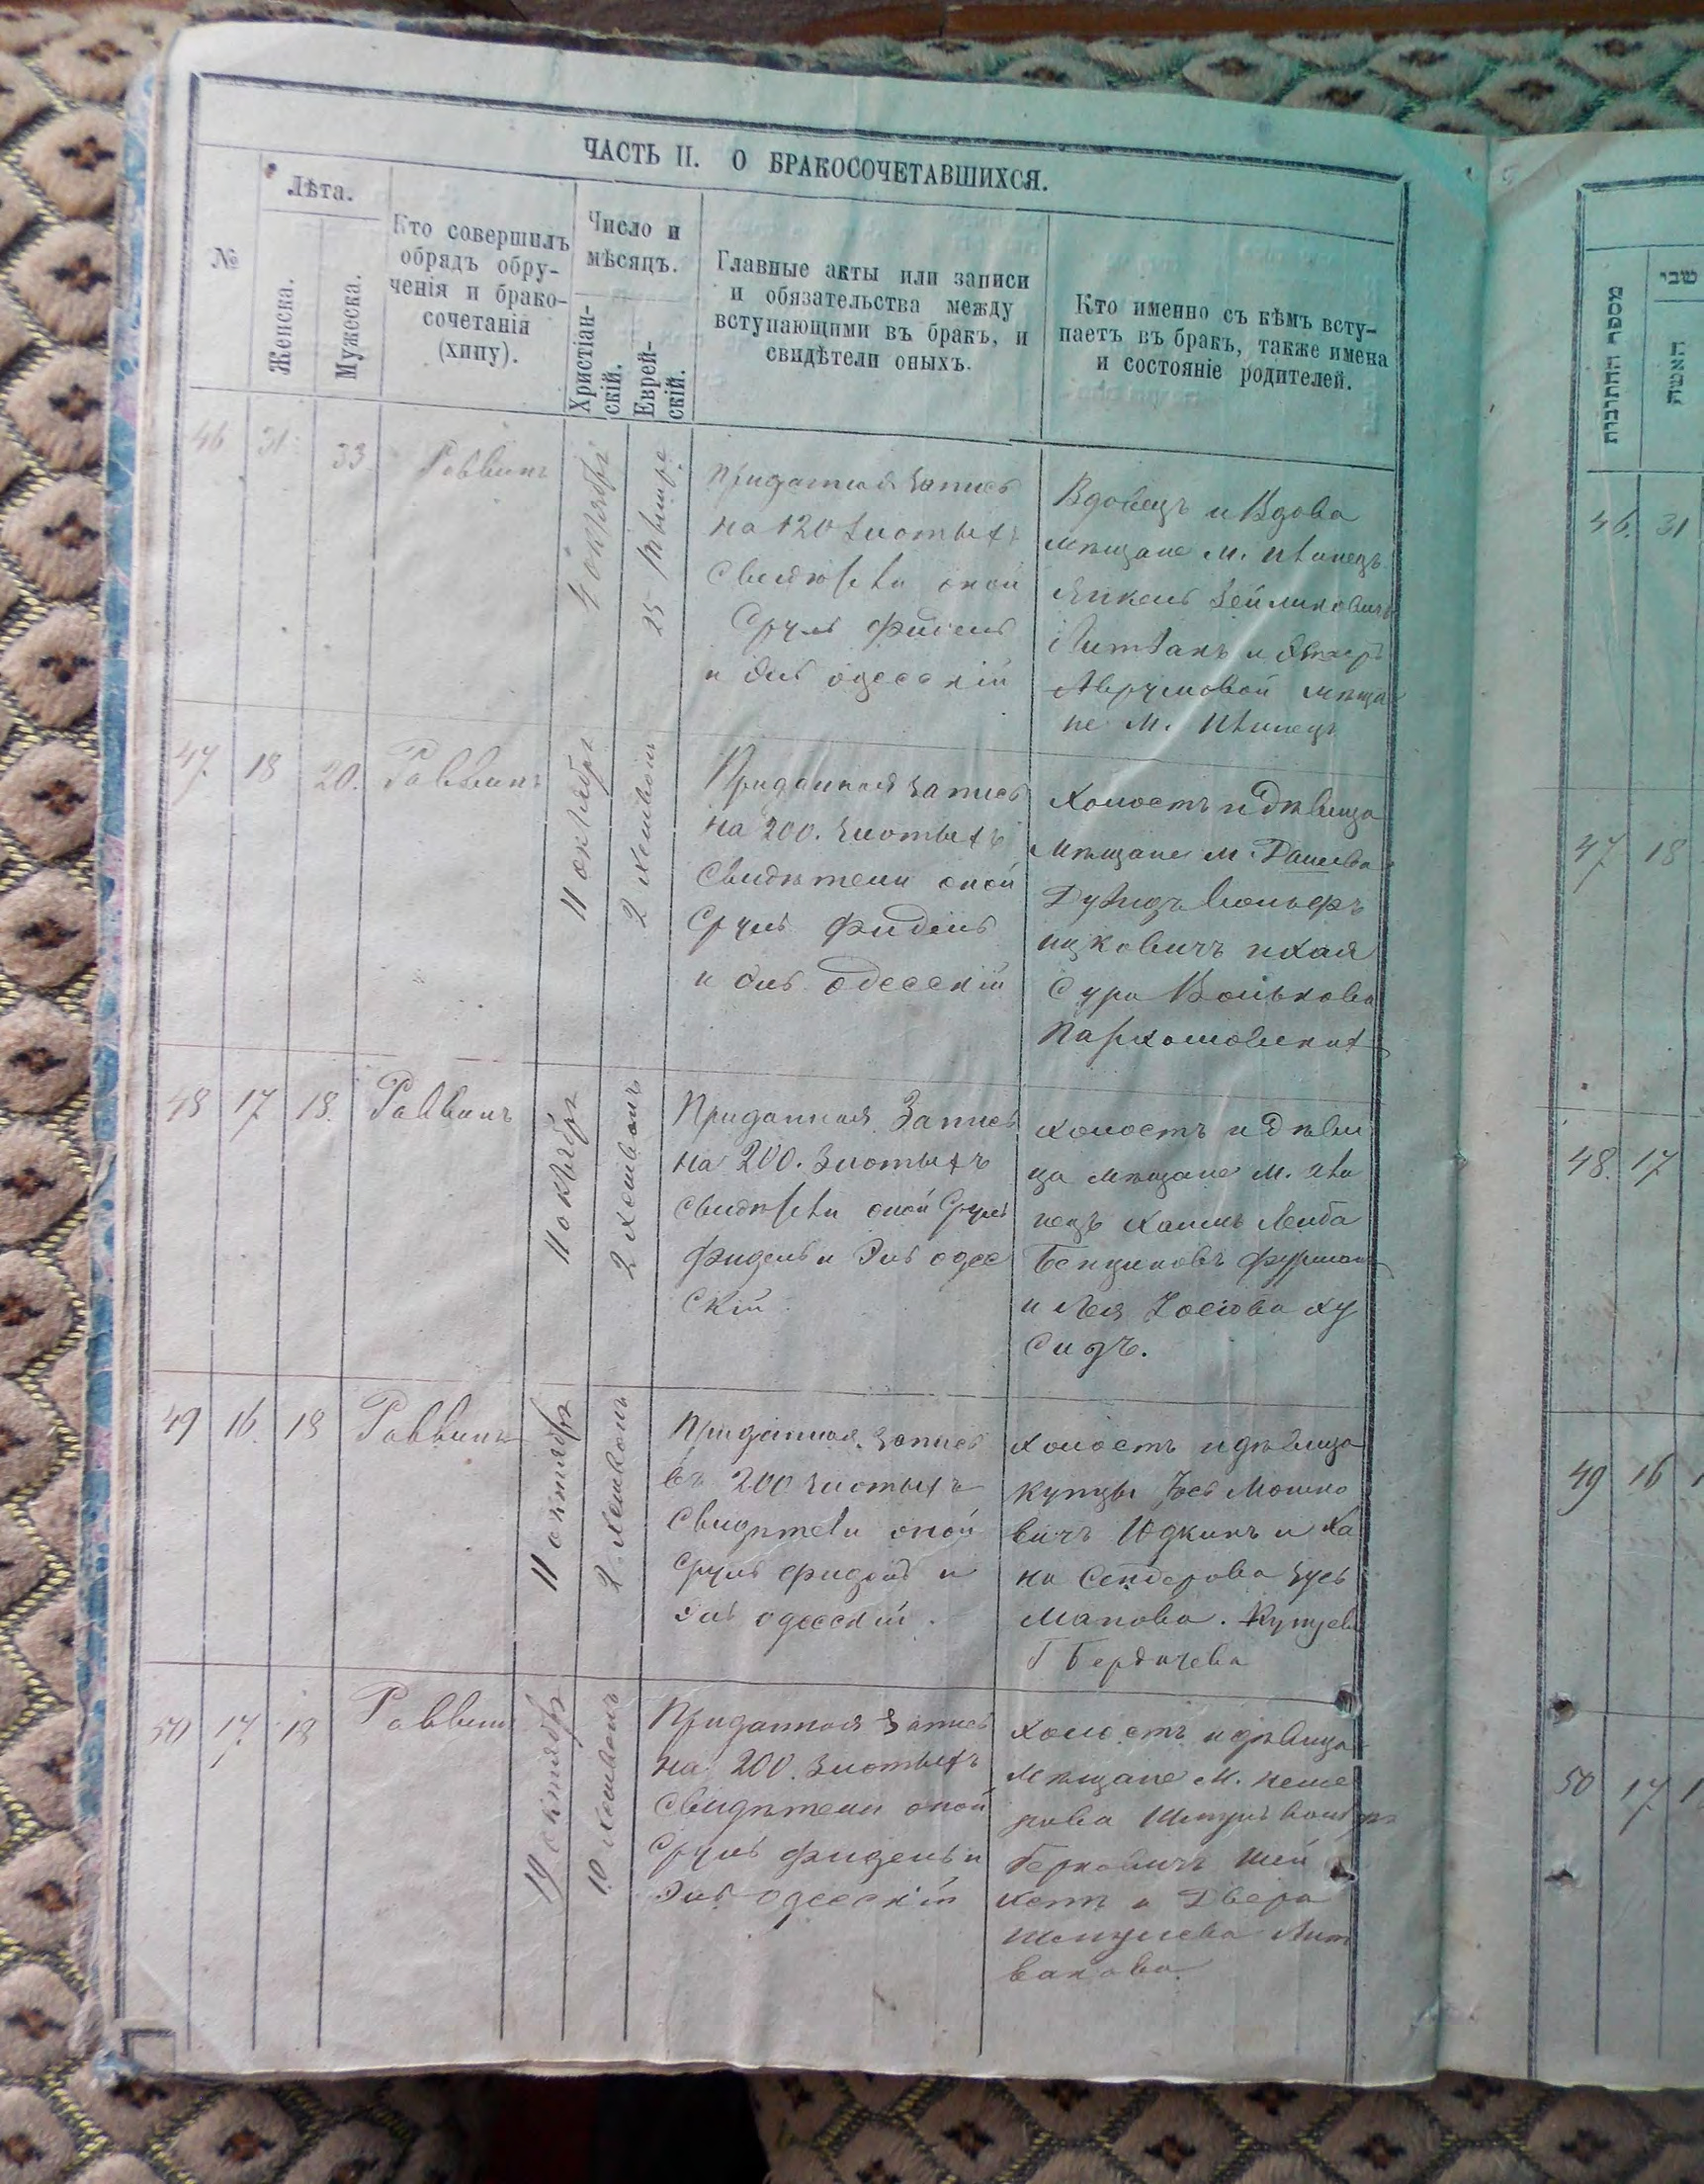 ЧАСТЬ II. О БРАКОСОЧЕТАВШИХСЯ.
№
Лѣта.
Женска.
Мужеска.
Кто совершилъ
обрядъ обру-
ченія и брако-
сочетанія
(хипу).
Число и
мѣсяцъ.
Христіан-
скій.
Еврей-
скій.
Главные акты или записи
и обязательства между
вступающими въ бракъ, и
свидѣтели оныхъ.
Кто именно съ кѣмъ всту-
паетъ въ бракъ, также имена
и состояніе родителей.
46
31
33
Раввинъ
4 октября
25 тишре
Приданная запись
на 120 злотыхъ
свидѣтели оной
Сруль Фидель
и Эль одесскій
Вдовецъ и Вдова
мѣщане м.
Янкель Зейликовичъ
Литвакъ и
Аврумовой мѣща
не м.
47.
18
20.
Раввинъ
11 октября
2 хешвонъ
Приданная запись
на 200. злотыхъ
Свидѣтели оной
Сруль Фидель
и Эль Одесскій
Холостъ и дѣвица
мѣщане м.
Дувидъ Вольфъ
ицковичъ и Хая
Сура Волькова
48
17
18.
Раввинъ
11 октября
2 хешвонъ
Приданная Запись
на 200. злотыхъ
свидѣтели оной Сруль
Фидель и Эль одес
скій
холостъ и дѣви
ца мѣщане м.
Хаимъ Лейба
Бенционовъ Фурман
и Лея Іосіова Ху
сидъ.
49
16.
18
Раввинъ
11 октября
2 хешвонъ
Приданная запись
въ 200 злотыхъ
Свидѣтели оной
Сруль Фидель и
Эль одесскій.
холостъ и дѣвица
купцы Іось Мошко
вичъ Юдкинъ и Ха
на Сендерова Зусь
манова. Купцевъ
Г Бердичева
50
17
18
Раввинъ
19 октября
10 хешвонъ
Приданная Запись
на 200. злотыхъ
Свидѣтели оной
Сруль Фидель и
Эль одесскій
холостъ и дѣвица
Мѣщане м. неме
рова Шмуль
Берковичъ
и Двера
Шмулева Лит
вакова.
מספר החתונות
שני
האשה
46.
31
47
18
48.
17
49
16
50
17